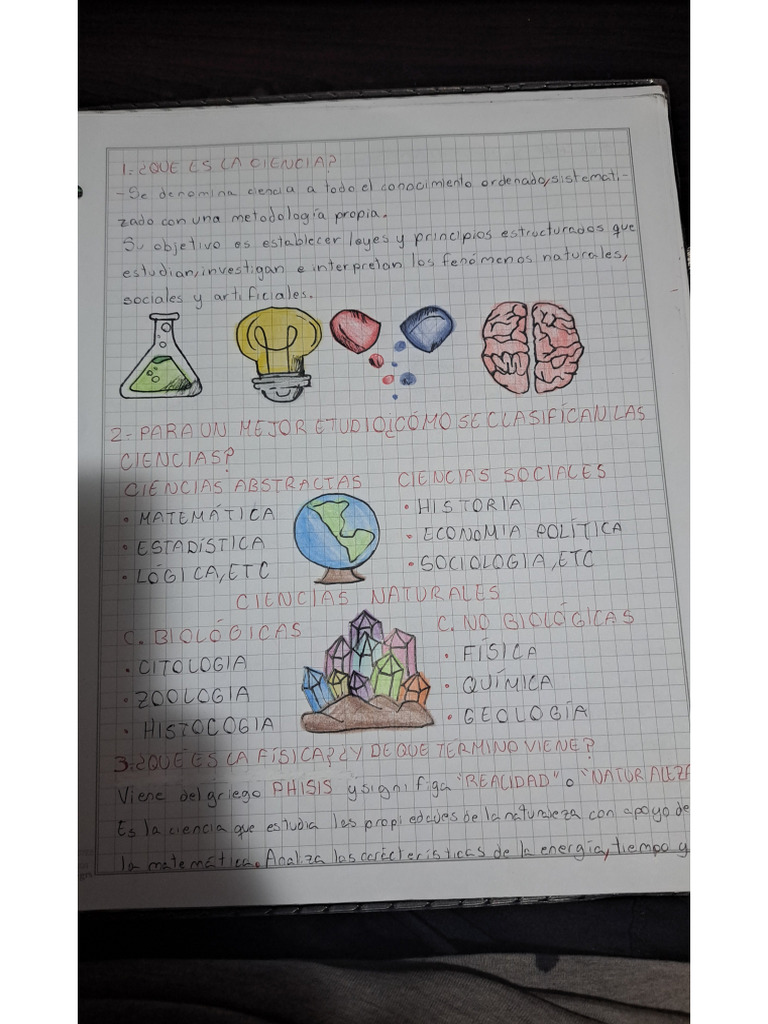 1. ¿QUE ES LA CIENCIA?
- Se denomina ciencia a todo el conocimiento ordenado, sistemati-
zado con una metodología propia.
Su objetivo es establecer leyes y principios estructurados que
estudian, investigan e interpretan los fenómenos naturales,
sociales y artificiales.
2- PARA UN MEJOR ETUDIO ¿CÓMO SE CLASIFÍCAN LAS
CIENCIAS?
CIENCIAS ABSTRACTAS
• MATEMÁTICA
• ESTADÍSTICA
• LÓGICA, ETC
CIENCIAS SOCIALES
• HISTORIA
• ECONOMIA POLÍTICA
• SOCIOLOGIA, ETC
CIENCIAS NATURALES
C. BIOLÓGICAS
• CITOLOGIA
• ZOOLOGIA
• HISTOCOGIA
C. NO BIOLÓGICAS
• FÍSICA
• QUÍMICA
• GEOLOGÍA
3. ¿QUÉ ES LA FÍSICA? ¿Y DE QUE TERMINO VIENE?
Viene del griego PHISIS y signifiga "REALIDAD" o "NATURALEZA
Es la ciencia que estudia las propiedades de la naturaleza con apoyo de
la matemática. Analiza las carácterísticas de la energía, tiempo y